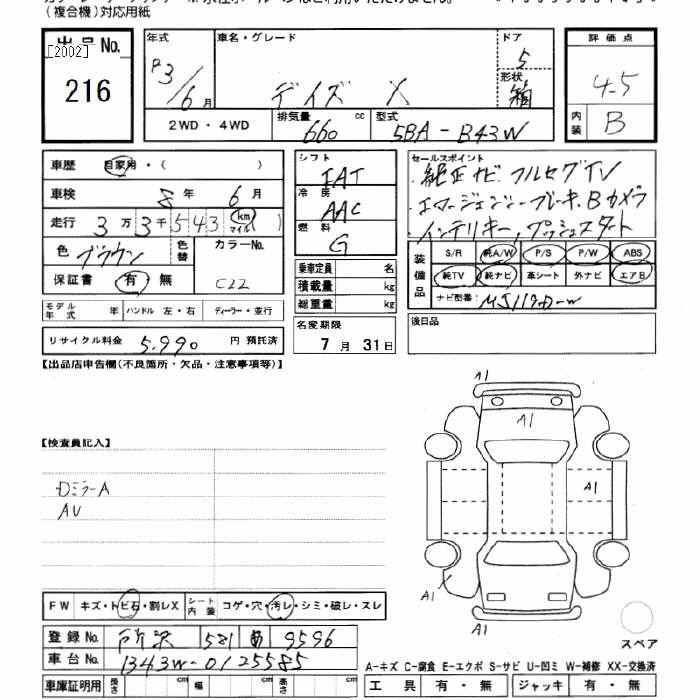 (複合機)対応用紙
出品No.
[2002]
216
年式 R3/6月
車名・グレード デイズ X
ドア 5
形状 箱
評価点 4.5
内装 B
2WD・4WD
排気量 660 cc
型式 5BA-B43W
車歴 自家用・( )
車検 8年 6月
走行 3万3千543 km マイル ( )
色 ブラウン 色替 カラーNo. C22
保証書 有・無
モデル年式 年 ハンドル 左・右 ディーラー・並行
リサイクル料金 5,990 円 預託済
シフト IAT
冷房 AAC
燃料 G
乗車定員 名
積載量 kg
総重量 kg
名変期限 7月31日
セールスポイント
純正ナビ フルセグTV
エマージェンシーブレーキ、Bカメラ
インテリキー、プッシュスタート
装備品 S/R 純A/W P/S P/W ABS
純TV 純ナビ 革シート 外ナビ エアB
ナビ型番: MJ119D-W
後日品
【出品店申告欄(不良箇所・欠品・注意事項等)】
【検査員記入】
DミラーA
AU
A1
A1
A1
A1
A1
スペア
FW キズ・トビ石・割レX シート内装 コゲ・穴・汚レ・シミ・破レ・スレ
登録No. 所沢 581 あ 9596
車台No. B43W-0125585
車庫証明用 長さ cm 幅 cm 高さ cm
A-キズ C-腐食 E-エクボ S-サビ U-凹ミ W-補修 XX-交換済
工具 有・無 ジャッキ 有・無